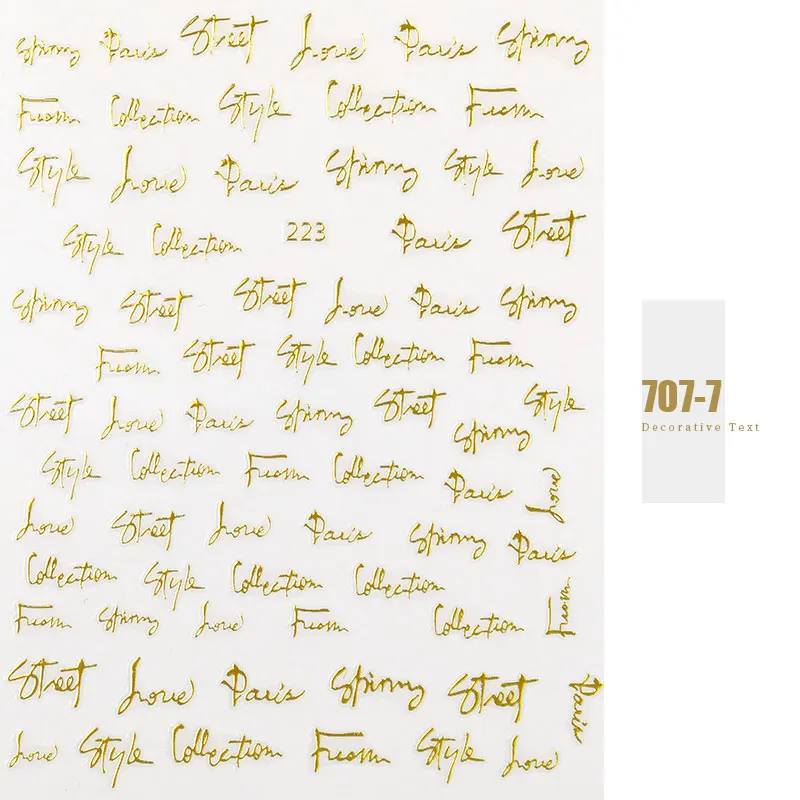 Spirnny Paris Street Love Paris Spirnny
Fuom Collection Style Collection Fuom
Style Love Paris Spirnny Style Love
Style Collection 223 Paris Street
Spirnny Street Street Love Paris Spirnny
Fuom Street Style Collection Fuom
Street Love Paris Spirnny Street Style
Spirnny
Style Collection Fuom Collection Paris Love
Love Street Love Paris Spirnny Paris
Collection Style Collection Collection
Fuom Spirnny Love Fuom Collection Fuom
Street Love Paris Spirnny Street Paris
Love Style Collection Fuom Style Love
707-7
Decorative Text